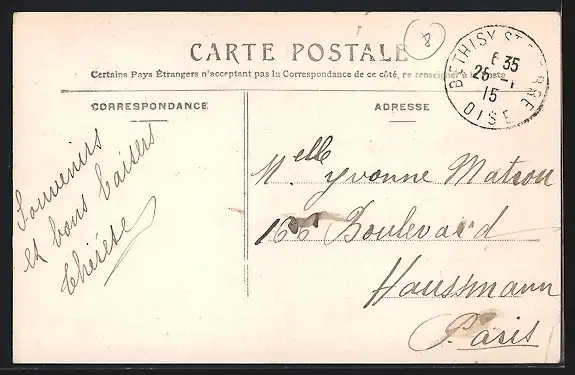 8
CARTE POSTALE
Certains Pays Étrangers n'acceptant pas la Correspondance de ce côté, se renseigner à la Poste
BETHISY ST PIERRE
6 35
25 -
15
OISE
CORRESPONDANCE
ADRESSE
Souvenirs
et bons baisers
Thérèse
Melle Yvonne Matrou
166 Boulevard
Haussmann
Paris